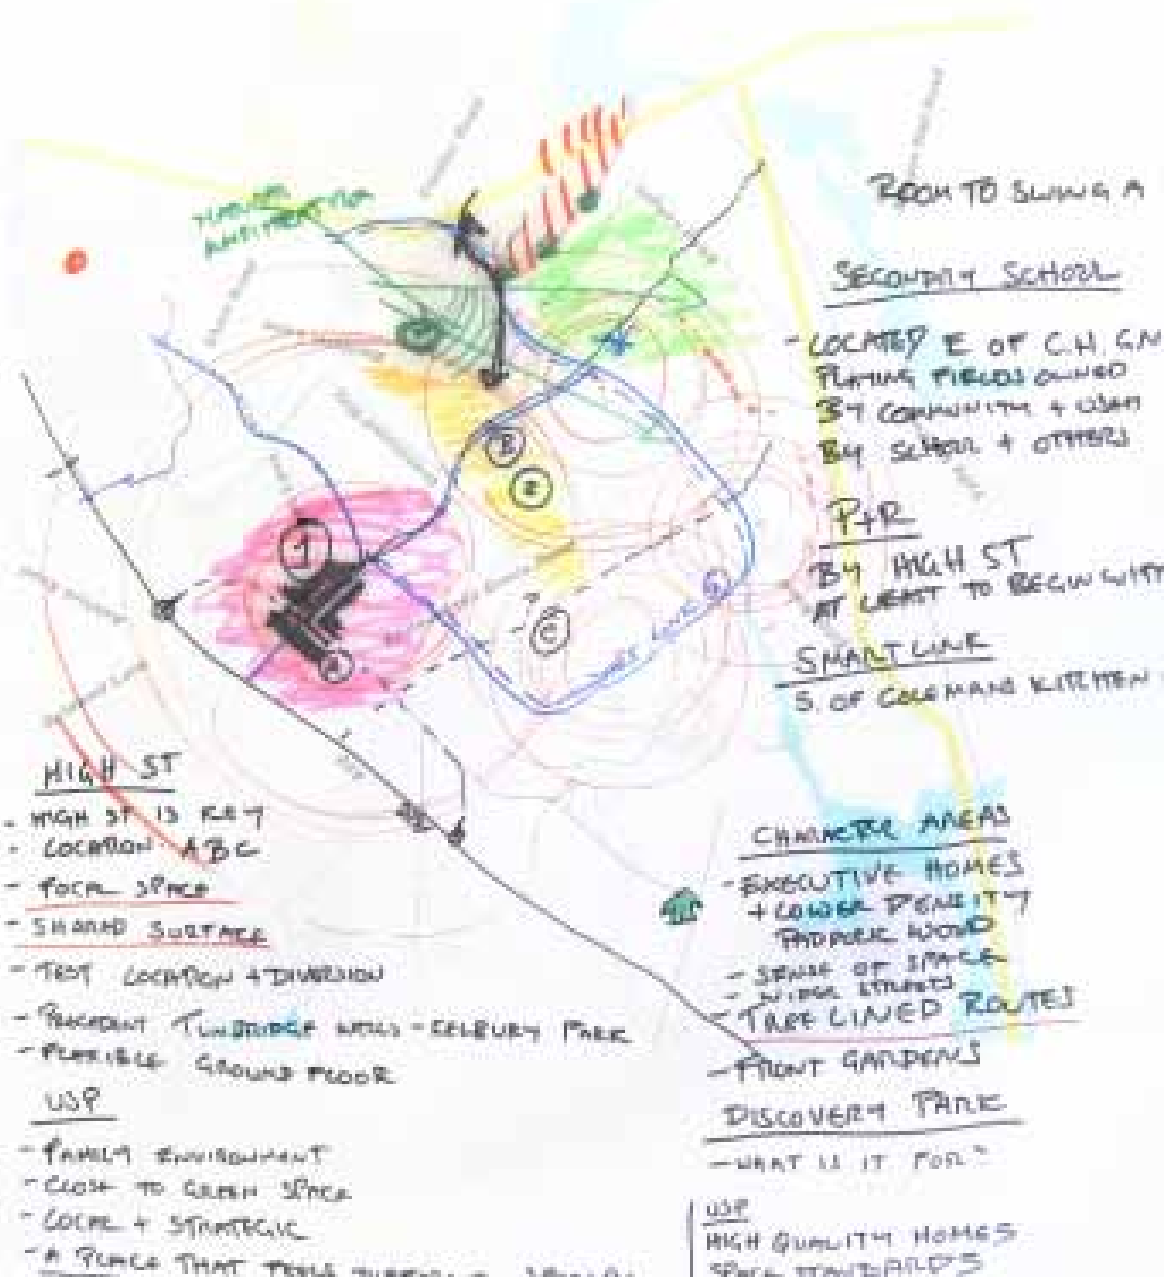 NATURAL
ROOM TO SWING A
SECONDARY SCHOOL
- LOCATED E OF C.H. GN
PLAYING FIELDS OWNED
BY COMMUNITY + USED
BY SCHOOL + OTHERS
P+R
BY HIGH ST
AT LEAST TO BEGIN WITH
SMART LINK
S. OF COLEMANS KITCHEN
1
B
2
C
A
HIGH ST
- HIGH ST IS KEY
- LOCATION ABC
- FOCAL SPACE
- SHARED SURFACE
- TEST LOCATION + DIVERSION
- PRECEDENT TUNBRIDGE WELLS - PARK
- FLEXIBLE GROUND FLOOR
USP
- FAMILY ENVIRONMENT
- CLOSE TO GREEN SPACE
- LOCAL + STRATEGIC
- A PLACE THAT FEELS
CHARACTER AREAS
- EXECUTIVE HOMES
+ LOWER DENSITY
PADDOCK WOOD
- SENSE OF SPACE
- WIDER STREETS
- TREE LINED ROUTES
- FRONT GARDENS
DISCOVERY PARK
- WHAT IS IT FOR?
USP
HIGH QUALITY HOMES
SPACE STANDARDS